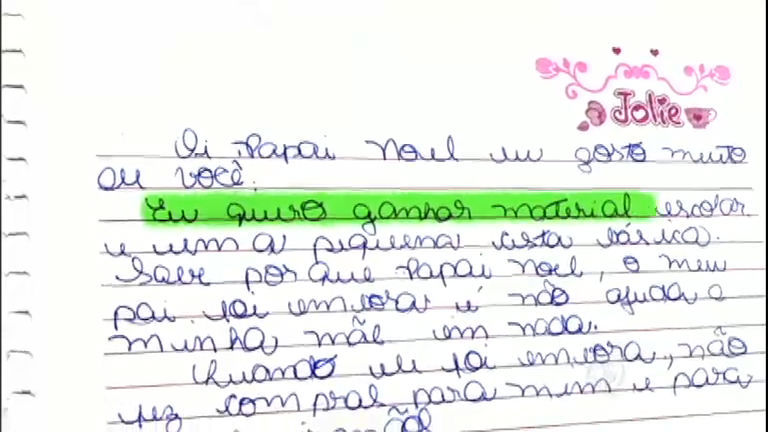 Jolie
Oi Papai Noel eu gosto muito
de você.
Eu quero ganhar material escolar
e uma pequena cesta básica.
Sabe por que Papai Noel, o meu
pai foi embora e não ajuda a
minha mãe em nada.
Quando ele foi embora, não
fez compras para mim e para